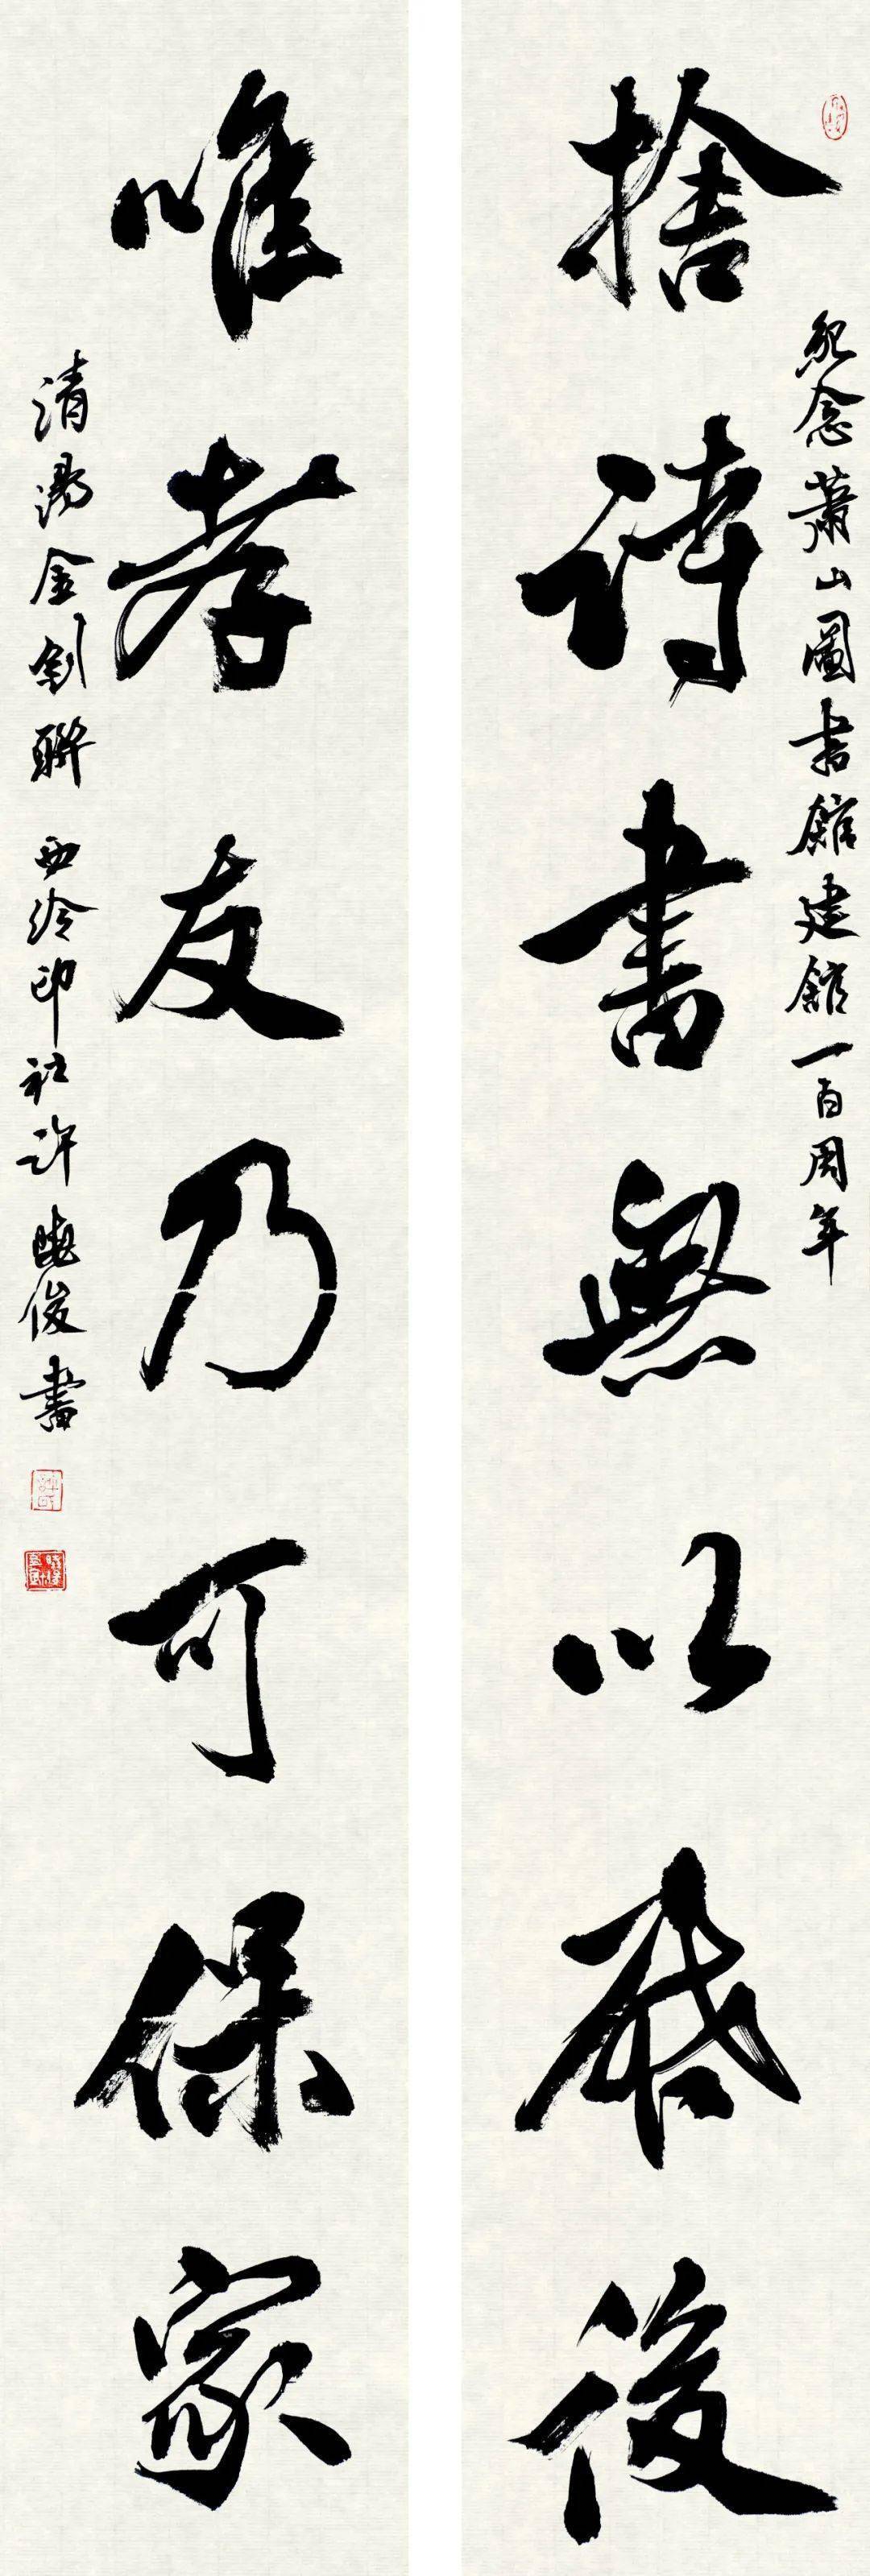 紀念蕭山圖書館建館一百周年
捨詩書無以啟後
唯孝友乃可保家
清湯金釗聯 西泠印社許曉俊書